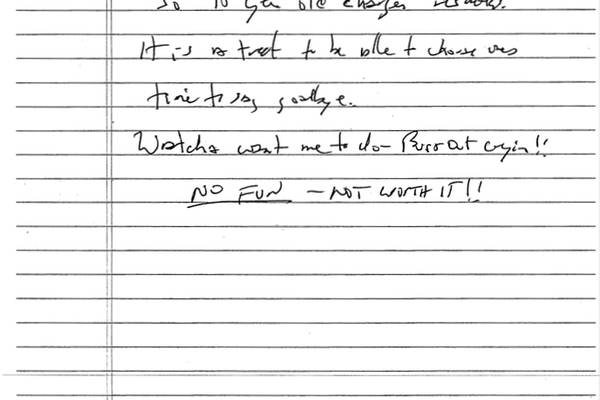 So 10 year old changes
It is a treat to be able to choose ones
time to say goodbye.
Watcha want me to do - Burst out cryin!!
NO FUN - NOT WORTH IT!!